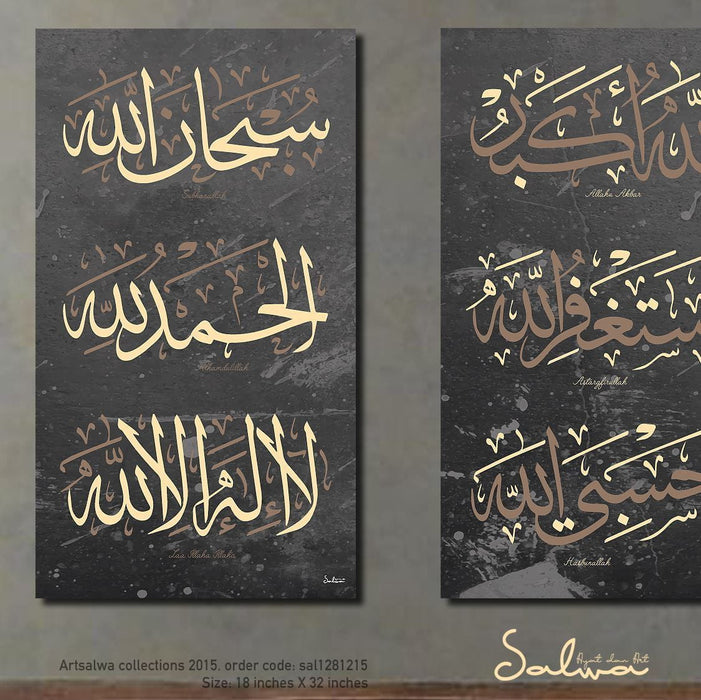 سُبْحَانَ اللّٰه
Subhanallah
الحمد لله
Alhamdulillah
لا إله إلا الله
Laa Illaha Illaha
Salwa
لله أكبر
Allahu Akbar
ستغفر الله
Astargfirullah
حسبي الله
Hasbinallah
Artsalwa collections 2015. order code: sal1281215
Size: 18 inches X 32 inches
Salwa
Ayat dan Art